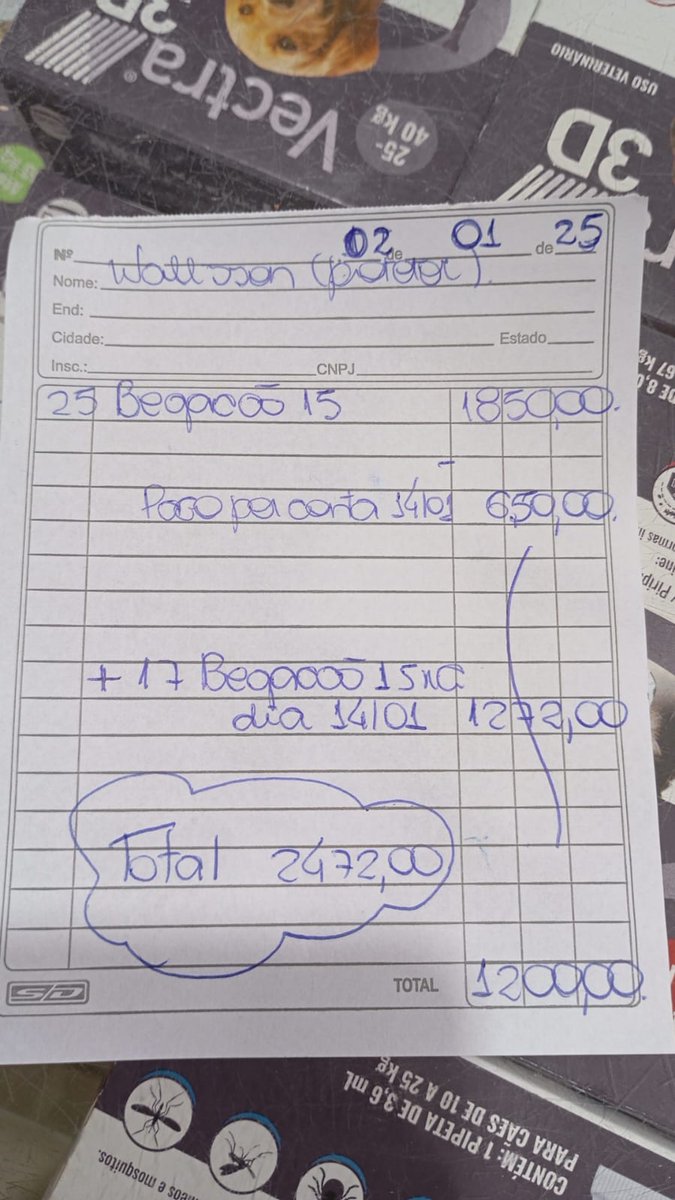 Vectra 3D
25-
40 kg
USO VETERINÁRIO
3D
Nº 02 de 01 de 25
Nome: Wallsson
End:
Cidade: Estado
Insc.: CNPJ
25 Begacoõ 15 1850,00.
Pago por conta 14/01 650,00.
+ 17 Begacoõ 15
dia 14/01 1272,00
Total 2472,00
SD TOTAL 1200,00.
CONTÉM: 1 PIPETA DE 3,6 mL
PARA CÃES DE 10 A 25 kg
e mosquitos.